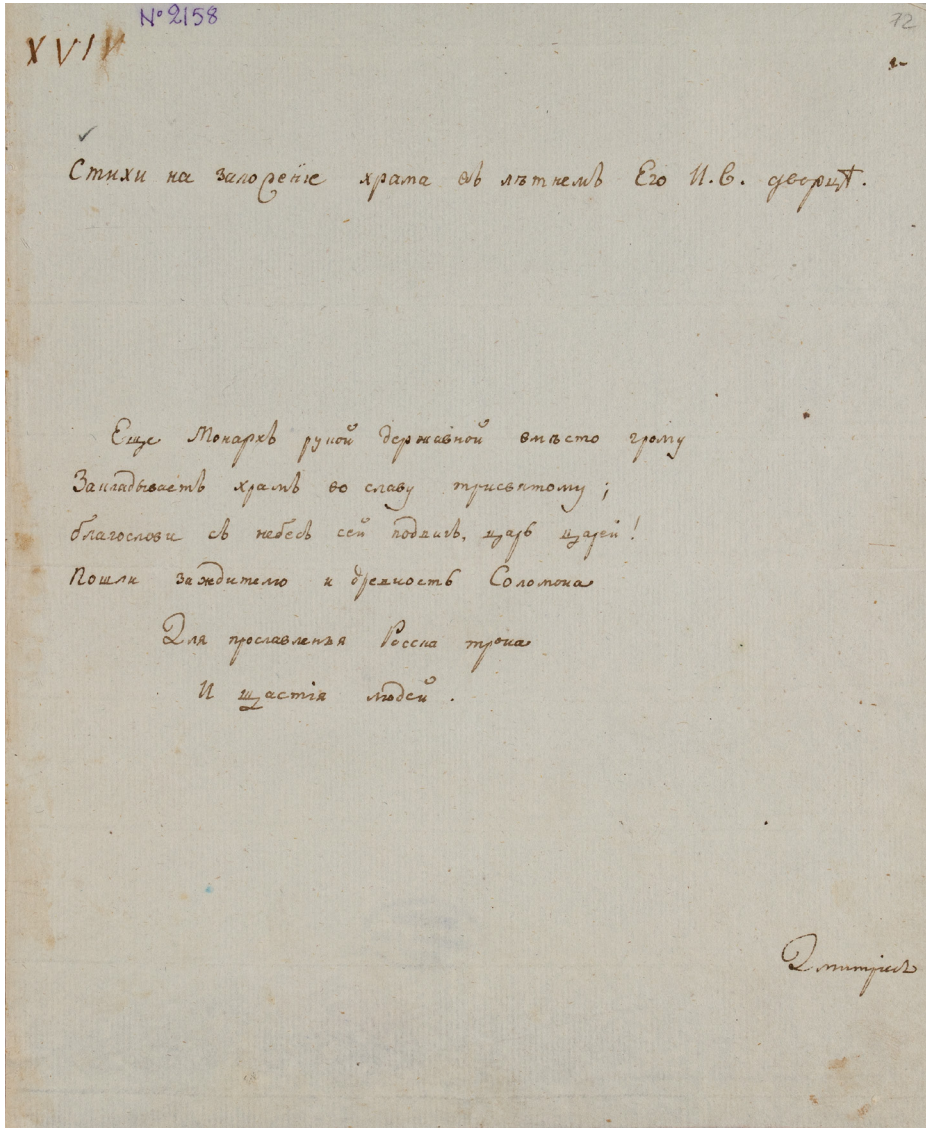 № 2158
72
XVIV
Стихи на заложеніе храма въ лѣтнемъ Его И. В. дворцѣ.
Еще Монархъ рукой державной вмѣсто грому
Закладываетъ храмъ во славу трисвятому;
благослови съ небесъ сей подвигъ, царь царей!
Пошли заждителю и древность Соломона
Для прославленья Росска трона
И щастія людей.
Дмитріевъ